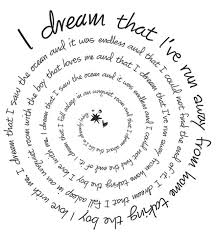 I dream that I've run away from home taking the boy I love with me. I dream that I saw the ocean and it was endless and that I could not find the end of it. I dream that I fall asleep in an unquiet room with the boy that loves me and that I dream that I've run away from home taking the boy I love with me. I dream that I saw the ocean and it was endless and I could not find the end of it. I dream that I fall asleep in an unquiet room